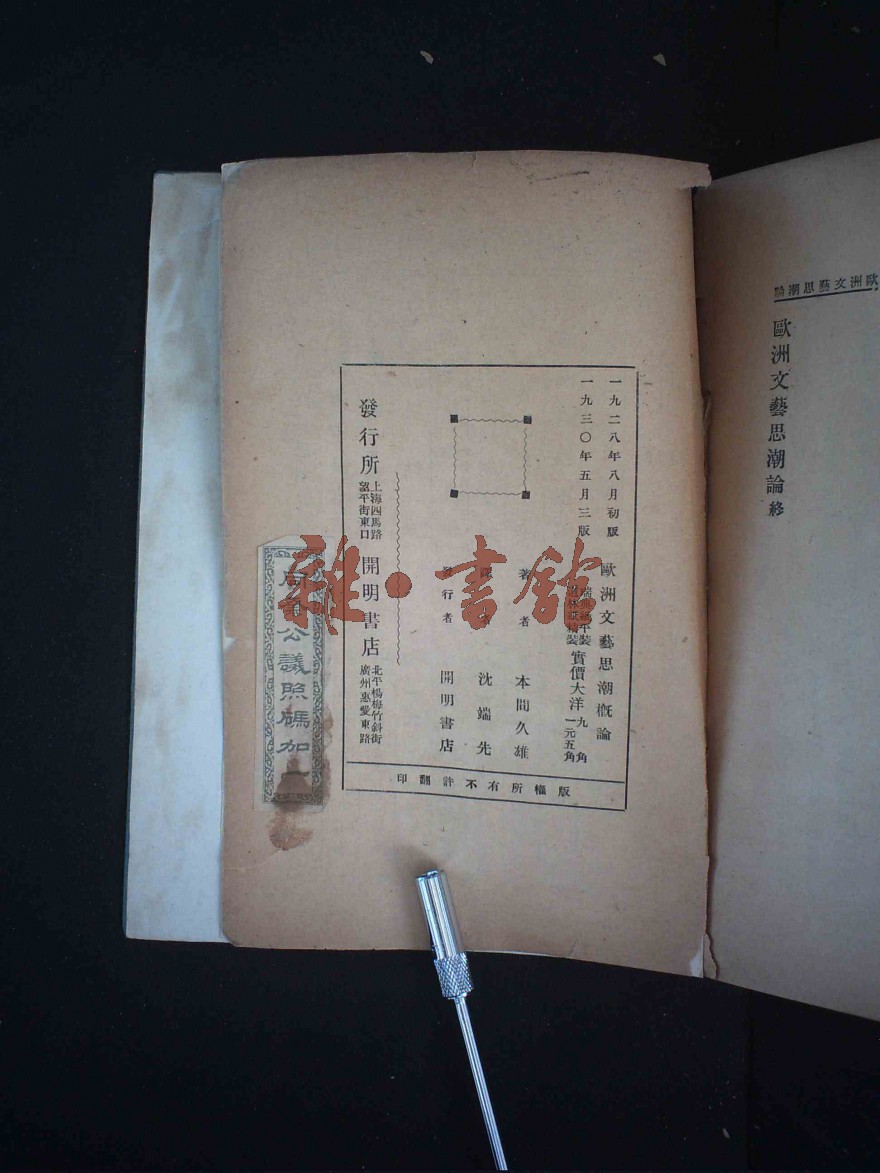 歐洲文藝思潮論
歐洲文藝思潮論終
一九二八年八月初版
一九三〇年五月三版
歐洲文藝思潮概論
平裝
精裝
實價大洋
九角
一元五角
著者
本間久雄
沈端先
發行者
開明書店
發行所
上海四馬路
望平街東口
開明書店
北平楊梅竹斜街
廣州惠愛東路
版權所有不許翻印
公議照碼加一
雜·書館